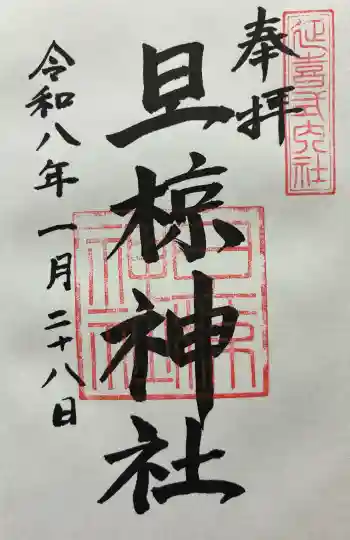 延喜式内社
奉拝
旦椋神社
令和八年一月二十八日
旦椋神社